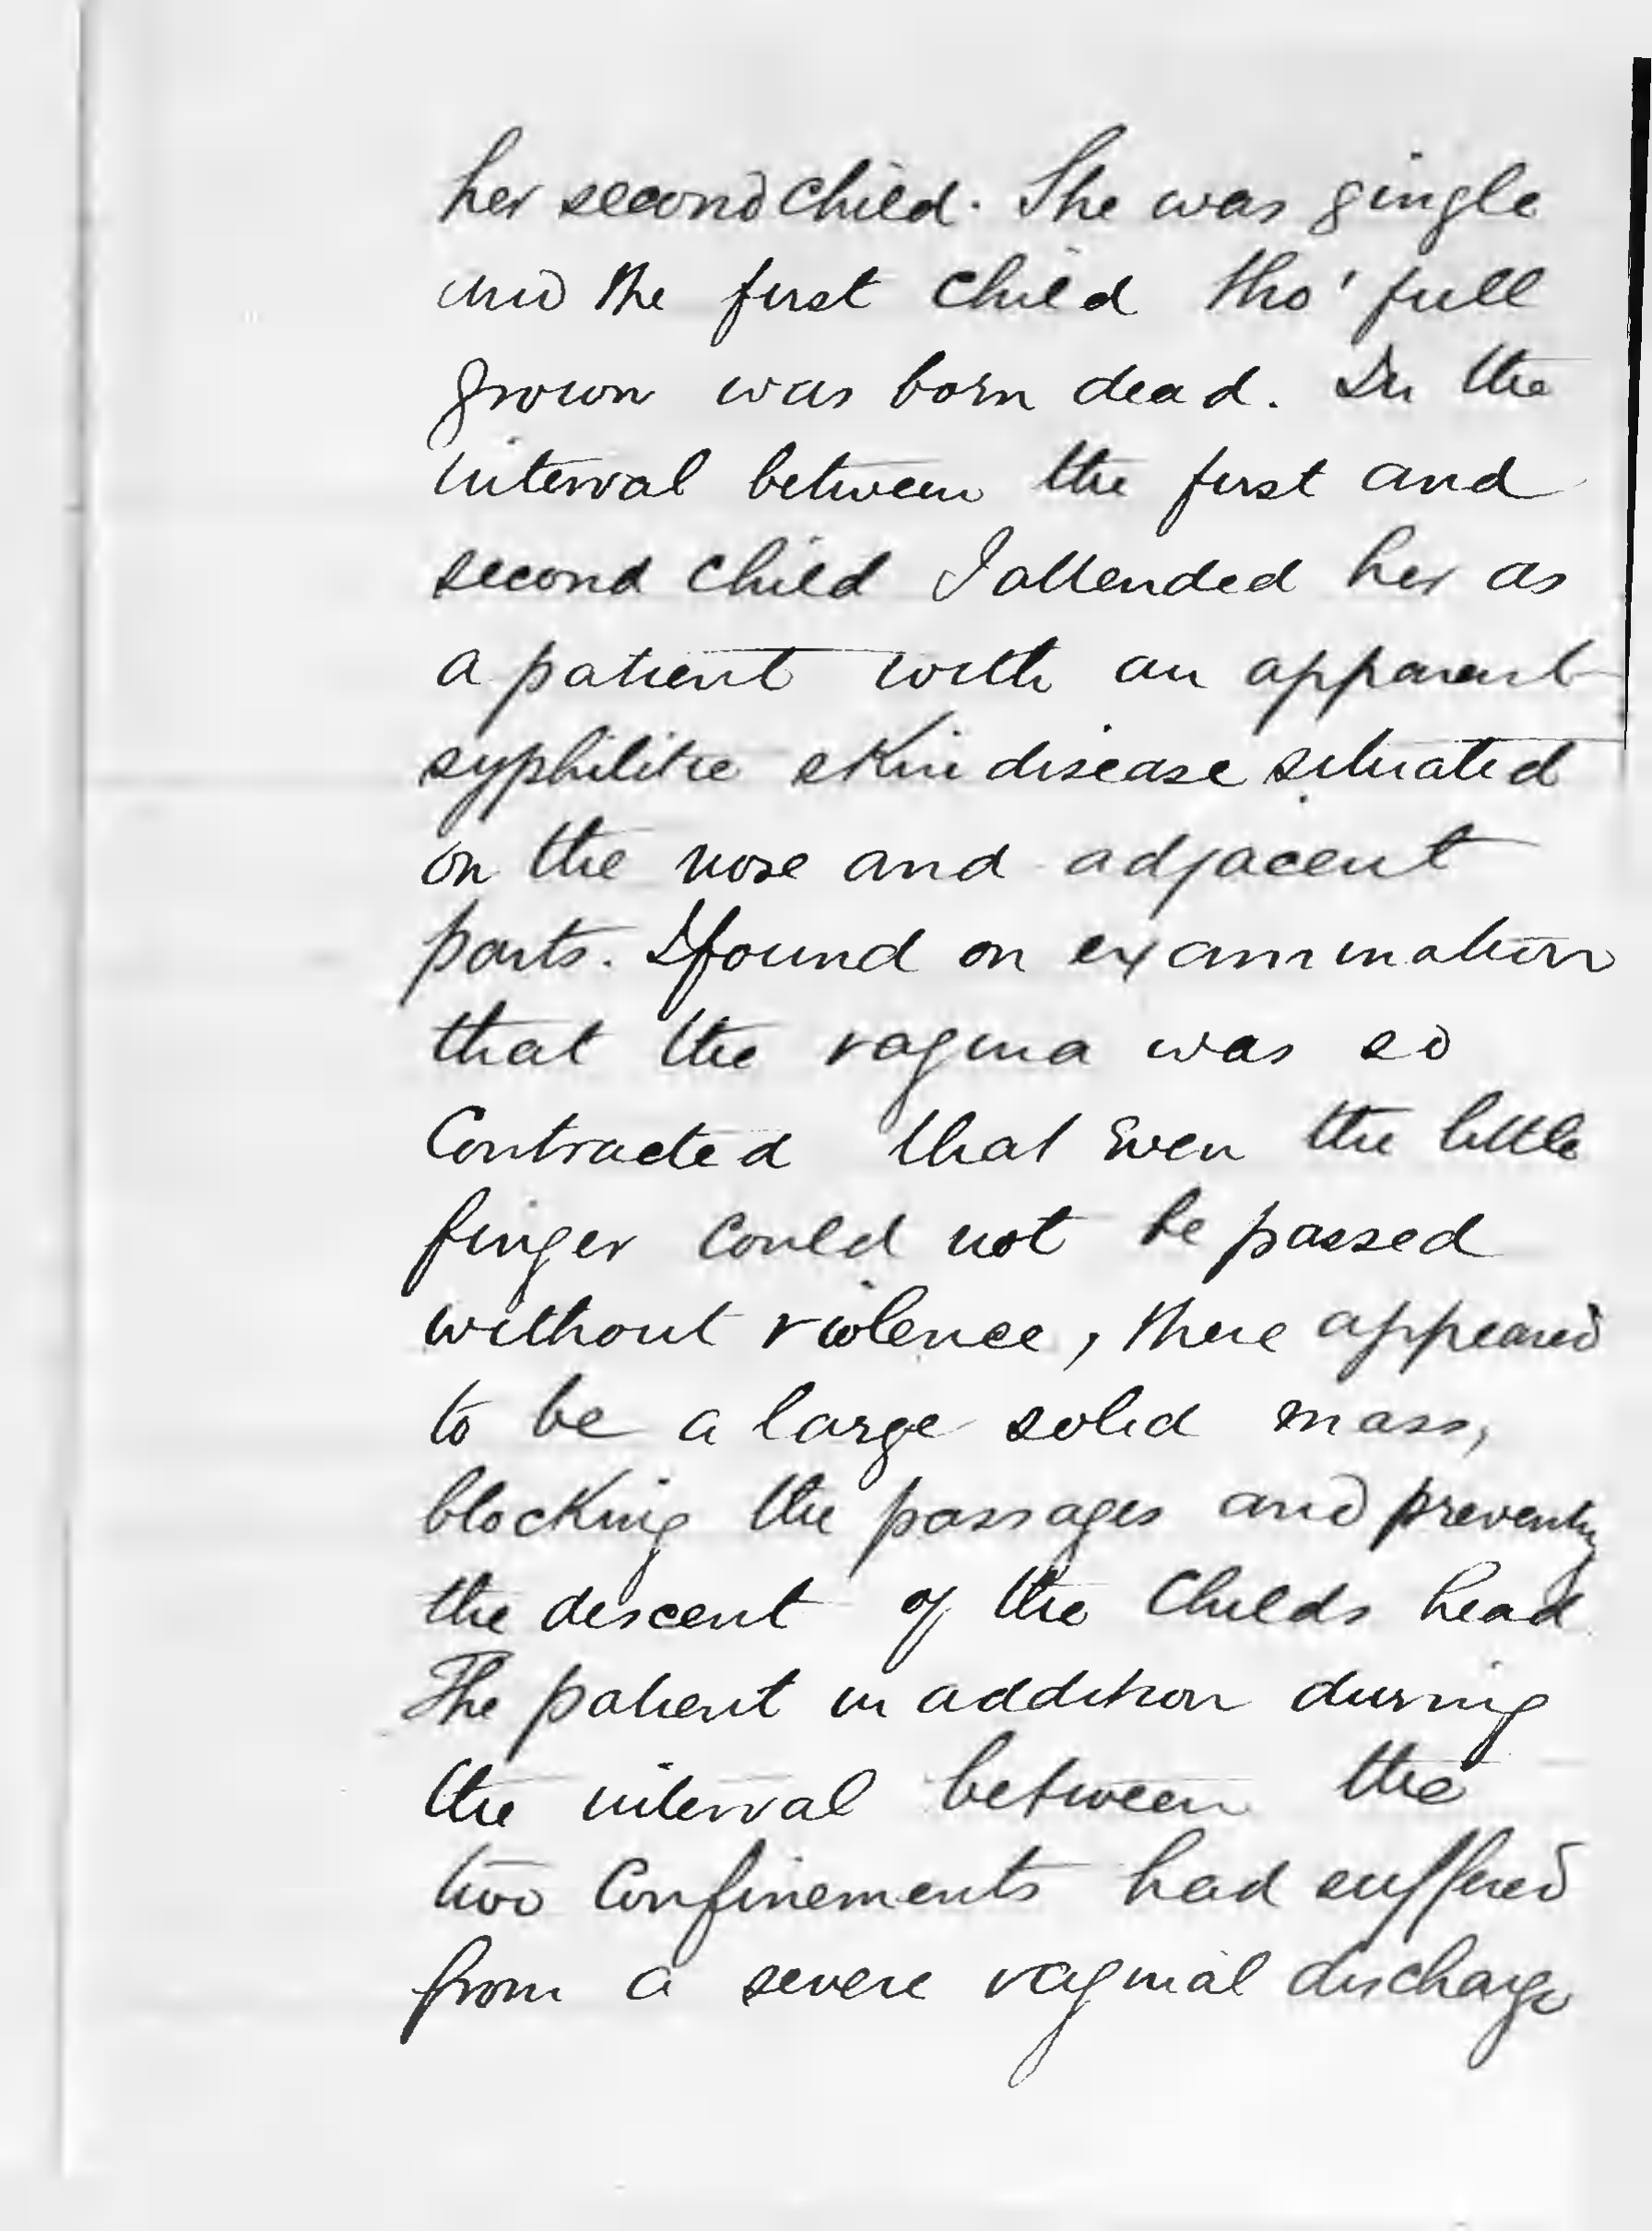 her second child. She was single
and the first child tho' full
grown was born dead. In the
interval between the first and
second child I attended her as
a patient with an apparent
syphilitic skin disease situated
on the nose and adjacent
parts. I found on examination
that the vagina was so
Contracted that even the little
finger could not be passed
without violence, there appeared
to be a large solid mass,
blocking the passages and preventg
the descent of the Childs head
The patient in addition during
the interval between the
two Confinements had suffered
from a severe vaginal discharge